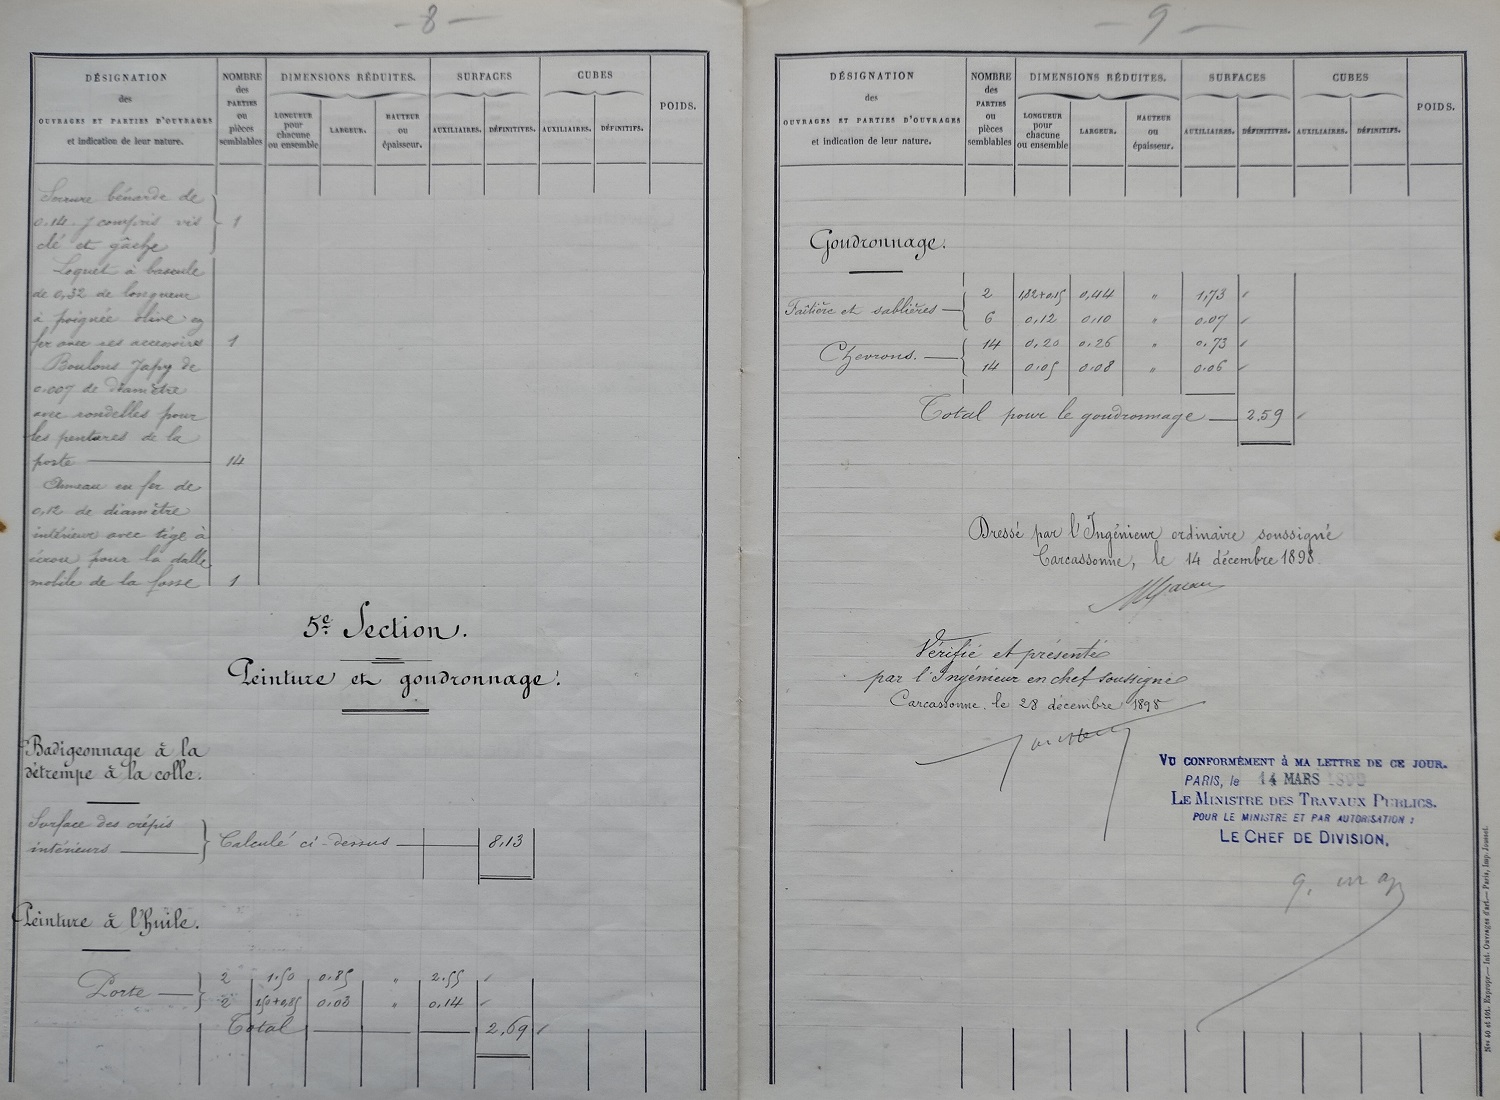 - 8 -
DÉSIGNATION
des
OUVRAGES ET PARTIES D'OUVRAGES
et indication de leur nature.
NOMBRE
des
PARTIES
ou
pièces
semblables
DIMENSIONS RÉDUITES.
LONGUEUR
pour
chacune
ou ensemble
LARGEUR.
HAUTEUR
ou
épaisseur.
SURFACES
AUXILIAIRES.
DÉFINITIVES.
CUBES
AUXILIAIRES.
DÉFINITIFS.
POIDS.
Serrure bénarde de
0.14. y compris vis
clé et gâche 1
Loquet à bascule
de 0,32 de longueur
à poignée olive en
fer avec ses accessoires 1
Boulons Japy de
0.007 de diamètre
avec rondelles pour
les pentures de la
porte 14
Anneau en fer de
0,12 de diamètre
intérieur avec tige à
écrou pour la dalle
mobile de la fosse 1
5e Section.
Peinture et goudronnage.
Badigeonnage à la
détrempe à la colle.
Surface des crépis
intérieurs Calculé ci-dessus 8,13
Peinture à l'huile.
Porte 2 1.50 0.85 " 2.55
2 1.50+0.85 0.03 " 0.14
Total 2.69
- 9 -
DÉSIGNATION
des
OUVRAGES ET PARTIES D'OUVRAGES
et indication de leur nature.
NOMBRE
des
PARTIES
ou
pièces
semblables
DIMENSIONS RÉDUITES.
LONGUEUR
pour
chacune
ou ensemble
LARGEUR.
HAUTEUR
ou
épaisseur.
SURFACES
AUXILIAIRES.
DÉFINITIVES.
CUBES
AUXILIAIRES.
DÉFINITIFS.
POIDS.
Goudronnage.
Faîtière et sablières 2 1,82+0.15 0,44 " 1,73
6 0,12 0,10 " 0.07
Chevrons. 14 0,20 0,26 " 0,73
14 0.05 0.08 " 0.06
Total pour le goudronnage 2.59
Dressé par l'Ingénieur ordinaire soussigné
Carcassonne, le 14 décembre 1898.
Vérifié et présenté
par l'Ingénieur en chef soussigné
Carcassonne, le 28 décembre 1898
VU CONFORMÉMENT à MA LETTRE DE CE JOUR.
PARIS, le 14 MARS
LE MINISTRE DES TRAVAUX PUBLICS.
POUR LE MINISTRE ET PAR AUTORISATION :
LE CHEF DE DIVISION,
Nos 40 et 101. Expropr.— Int. Ouvrages d'art.— Paris, Imp. Jousset.